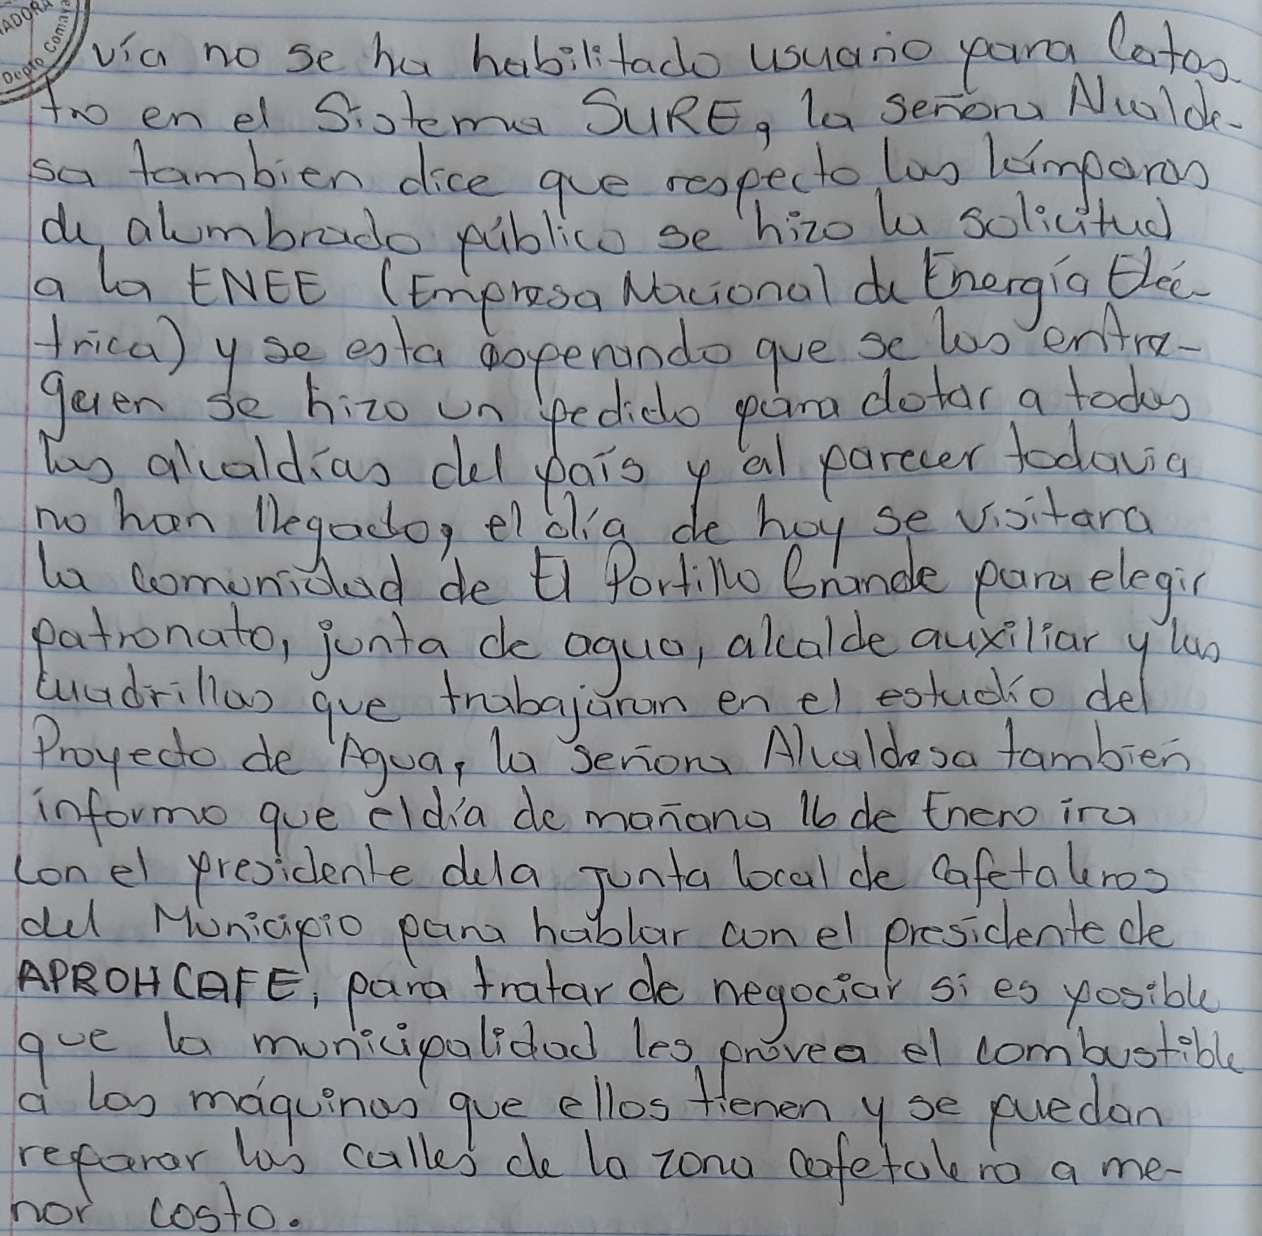 ADORA
Depto Comaya
vía no se ha habilitado usuario para Catas-
tro en el Sistema SURE, la señora Alcalde-
sa tambien dice que respecto las lámparas
de alumbrado público se hizo la solicitud
a la ENEE (Empresa Nacional de Energía Eléc-
trica) y se esta esperando que se las entre-
guen se hizo un pedido para dotar a todas
las alcaldías del país y al parecer todavia
no han llegado, el día de hoy se visitara
la comunidad de El Portillo Grande para elegir
patronato, junta de agua, alcalde auxiliar y las
cuadrillas que trabajaran en el estudio del
Proyecto de Agua, la señora Alcaldesa tambien
informo que el día de mañana 16 de Enero ira
con el presidente dela Junta local de Cafetaleros
del Municipio para hablar con el presidente de
APROHCAFE, para tratar de negociar si es posible
que la municipalidad les provea el combustible
a las máquinas que ellos tienen y se puedan
reparar las calles de la zona cafetalera a me-
nor costo.